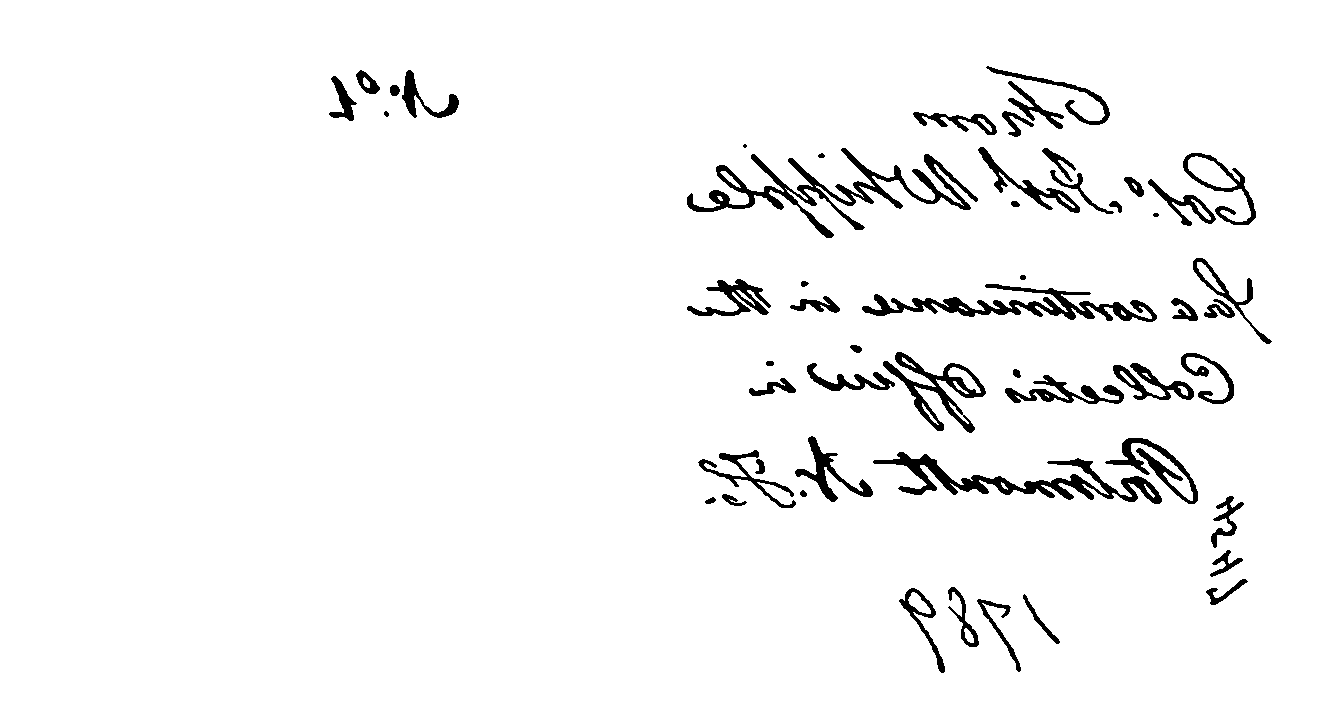 No. 1
From
Colo. Jos. Whipple
For a continuance in the
Collectors Office in
Portsmouth N. H.
1789